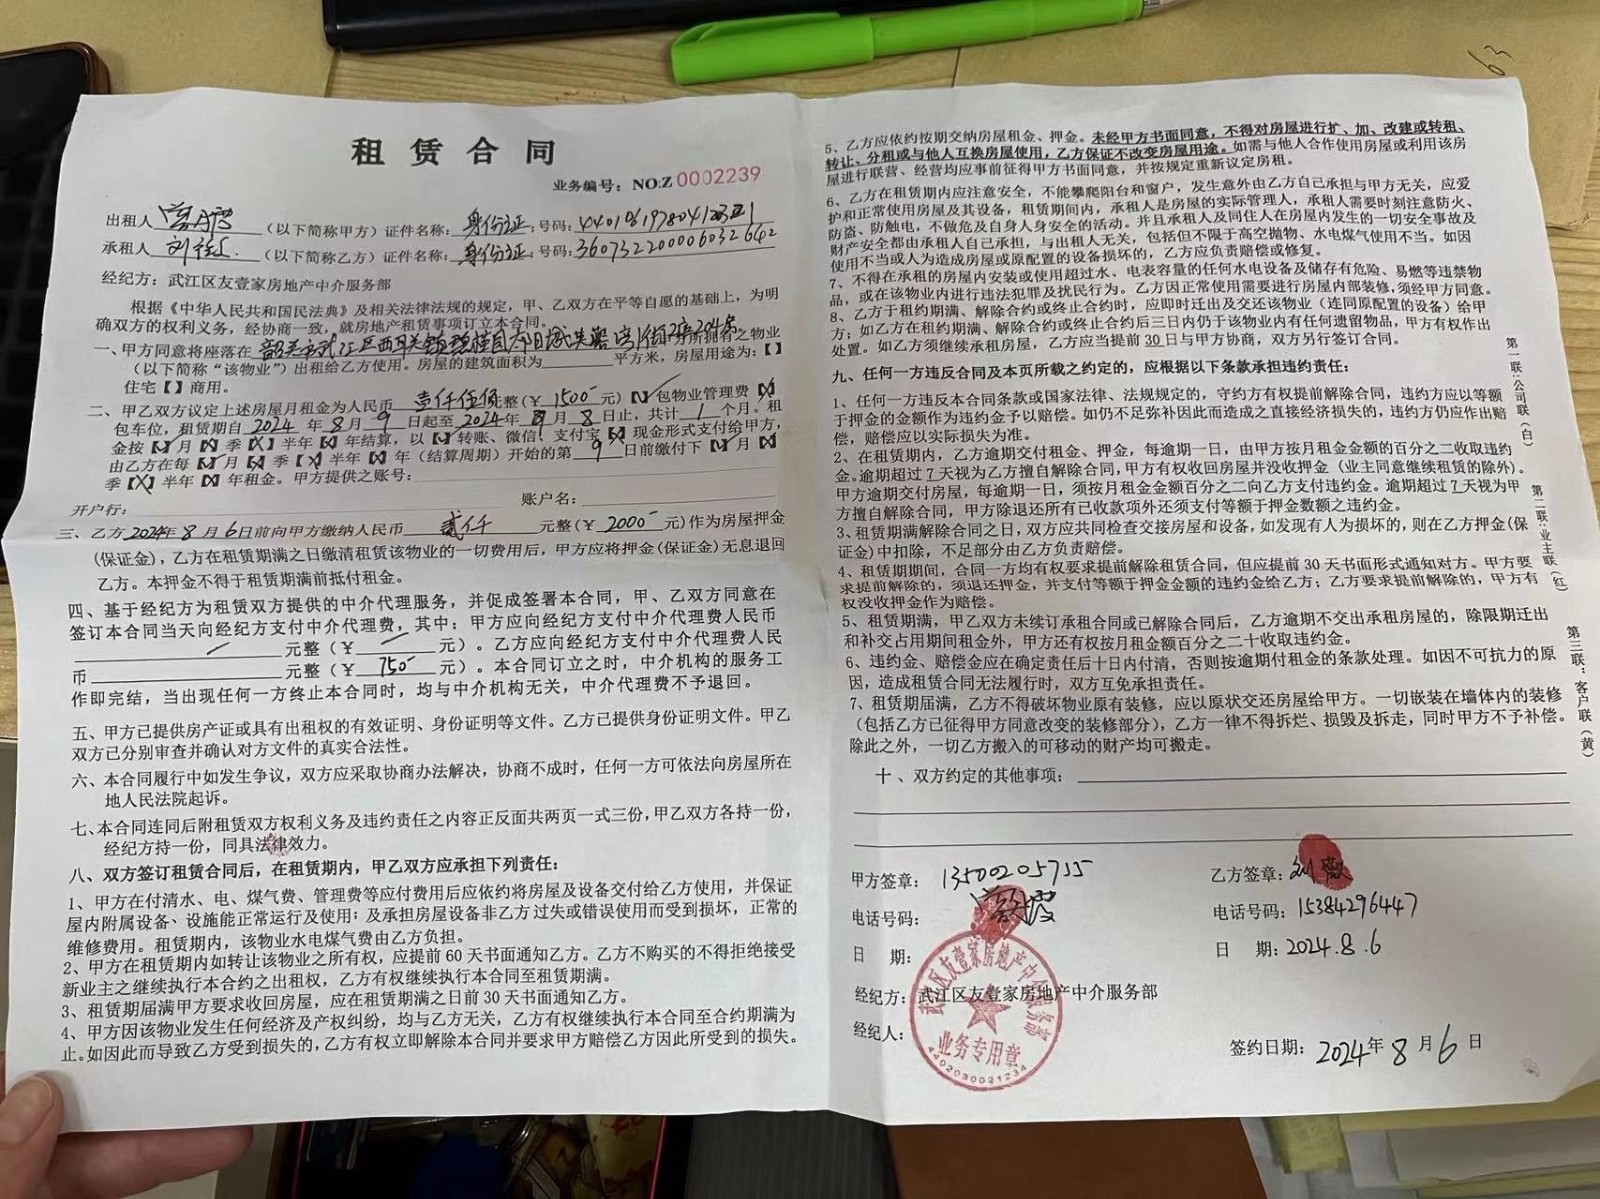 租赁合同
业务编号：NO:Z 0002239
出租人 （以下简称甲方）证件名称：身份证 号码：
承租人 （以下简称乙方）证件名称：身份证 号码：
经纪方：武江区友壹家房地产中介服务部
根据《中华人民共和国民法典》及相关法律法规的规定，甲、乙双方在平等自愿的基础上，为明
确双方的权利义务，经协商一致，就房地产租赁事项订立本合同。
一、甲方同意将座落在 所拥有之物业
（以下简称“该物业”）出租给乙方使用。房屋的建筑面积为 平方米，房屋用途为：【】
住宅【】商用。
二、甲乙双方议定上述房屋月租金为人民币 壹仟伍佰 整（￥ 1500 元）【✓】包物业管理费【X】
包车位，租赁期自 2024 年 8 月 9 日起至 2024 年 月 8 日止，共计 1 个月。租
金按【✓】月【X】季【X】半年【X】年结算，以【✓】转账、微信、支付宝【✓】现金形式支付给甲方，
由乙方在每【✓】月【X】季【X】半年【X】年（结算周期）开始的第 9 日前缴付下【✓】月【X】
季【X】半年【X】年租金。甲方提供之账号：
开户行： 账户名：
三、乙方 2024年 8 月 6 日前向甲方缴纳人民币 贰仟 元整（￥ 2000 元）作为房屋押金
（保证金），乙方在租赁期满之日缴清租赁该物业的一切费用后，甲方应将押金（保证金）无息退回
乙方。本押金不得于租赁期满前抵付租金。
四、基于经纪方为租赁双方提供的中介代理服务，并促成签署本合同，甲、乙双方同意在
签订本合同当天向经纪方支付中介代理费，其中：甲方应向经纪方支付中介代理费人民币
元整（￥ 元）。乙方应向经纪方支付中介代理费人民
币 元整（￥ 750 元）。本合同订立之时，中介机构的服务工
作即完结，当出现任何一方终止本合同时，均与中介机构无关，中介代理费不予退回。
五、甲方已提供房产证或具有出租权的有效证明、身份证明等文件。乙方已提供身份证明文件。甲乙
双方已分别审查并确认对方文件的真实合法性。
六、本合同履行中如发生争议，双方应采取协商办法解决，协商不成时，任何一方可依法向房屋所在
地人民法院起诉。
七、本合同连同后附租赁双方权利义务及违约责任之内容正反面共两页一式三份，甲乙双方各持一份，
经纪方持一份，同具法律效力。
八、双方签订租赁合同后，在租赁期内，甲乙双方应承担下列责任：
1、甲方在付清水、电、煤气费、管理费等应付费用后应依约将房屋及设备交付给乙方使用，并保证
屋内附属设备、设施能正常运行及使用；及承担房屋设备非乙方过失或错误使用而受到损坏，正常的
维修费用。租赁期内，该物业水电煤气费由乙方负担。
2、甲方在租赁期内如转让该物业之所有权，应提前60天书面通知乙方。乙方不购买的不得拒绝接受
新业主之继续执行本合约之出租权，乙方有权继续执行本合同至租赁期满。
3、租赁期届满甲方要求收回房屋，应在租赁期满之日前30天书面通知乙方。
4、甲方因该物业发生任何经济及产权纠纷，均与乙方无关，乙方有权继续执行本合同至合约期满为
止。如因此而导致乙方受到损失的，乙方有权立即解除本合同并要求甲方赔偿乙方因此所受到的损失。
5、乙方应依约按期交纳房屋租金、押金。未经甲方书面同意，不得对房屋进行扩、加、改建或转租、
转让、分租或与他人互换房屋使用，乙方保证不改变房屋用途。如需与他人合作使用房屋或利用该房
屋进行联营、经营均应事前征得甲方书面同意，并按规定重新议定房租。
6、乙方在租赁期内应注意安全，不能攀爬阳台和窗户，发生意外由乙方自己承担与甲方无关，应爱
护和正常使用房屋及其设备，租赁期间内，承租人是房屋的实际管理人，承租人需要时刻注意防火、
防盗、防触电，不做危及自身人身安全的活动。并且承租人及同住人在房屋内发生的一切安全事故及
财产安全都由承租人自己承担，与出租人无关，包括但不限于高空抛物、水电煤气使用不当。如因
使用不当或人为造成房屋或原配置的设备损坏的，乙方应负责赔偿或修复。
7、不得在承租的房屋内安装或使用超过水、电表容量的任何水电设备及储存有危险、易燃等违禁物
品，或在该物业内进行违法犯罪及扰民行为。乙方因正常使用需要进行房屋内部装修，须经甲方同意。
8、乙方于租约期满、解除合约或终止合约时，应即时迁出及交还该物业（连同原配置的设备）给甲
方；如乙方在租约期满、解除合约或终止合约后三日内仍于该物业内有任何遗留物品，甲方有权作出
处置。如乙方须继续承租房屋，乙方应当提前30日与甲方协商，双方另行签订合同。
九、任何一方违反合同及本页所载之约定的，应根据以下条款承担违约责任：
1、任何一方违反本合同条款或国家法律、法规规定的，守约方有权提前解除合同，违约方应以等额
于押金的金额作为违约金予以赔偿。如仍不足弥补因此而造成之直接经济损失的，违约方仍应作出赔
偿，赔偿应以实际损失为准。
2、在租赁期内，乙方逾期交付租金、押金，每逾期一日，由甲方按月租金金额的百分之二收取违约
金。逾期超过7天视为乙方擅自解除合同，甲方有权收回房屋并没收押金（业主同意继续租赁的除外）。
甲方逾期交付房屋，每逾期一日，须按月租金金额百分之二向乙方支付违约金。逾期超过7天视为甲
方擅自解除合同，甲方除退还所有已收款项外还须支付等额于押金数额之违约金。
3、租赁期满解除合同之日，双方应共同检查交接房屋和设备，如发现有人为损坏的，则在乙方押金（保
证金）中扣除，不足部分由乙方负责赔偿。
4、租赁期期间，合同一方均有权要求提前解除租赁合同，但应提前30天书面形式通知对方。甲方要
求提前解除的，须退还押金，并支付等额于押金金额的违约金给乙方；乙方要求提前解除的，甲方有
权没收押金作为赔偿。
5、租赁期满，甲乙双方未续订承租合同或已解除合同后，乙方逾期不交出承租房屋的，除限期迁出
和补交占用期间租金外，甲方还有权按月租金额百分之二十收取违约金。
6、违约金、赔偿金应在确定责任后十日内付清，否则按逾期付租金的条款处理。如因不可抗力的原
因，造成租赁合同无法履行时，双方互免承担责任。
7、租赁期届满，乙方不得破坏物业原有装修，应以原状交还房屋给甲方。一切嵌装在墙体内的装修
（包括乙方已征得甲方同意改变的装修部分），乙方一律不得拆烂、损毁及拆走，同时甲方不予补偿。
除此之外，一切乙方搬入的可移动的财产均可搬走。
十、双方约定的其他事项：
甲方签章： 13500205715
电话号码：
日 期：
乙方签章：刘
电话号码：15384296447
日 期：2024.8.6
经纪方：武江区友壹家房地产中介服务部
经纪人：
签约日期：2024年 8 月 6 日
武江区友壹家房地产中介服务部
业务专用章
4402030021234
第一联：公司联（白）
第二联：业主联（红）
第三联：客户联（黄）
63